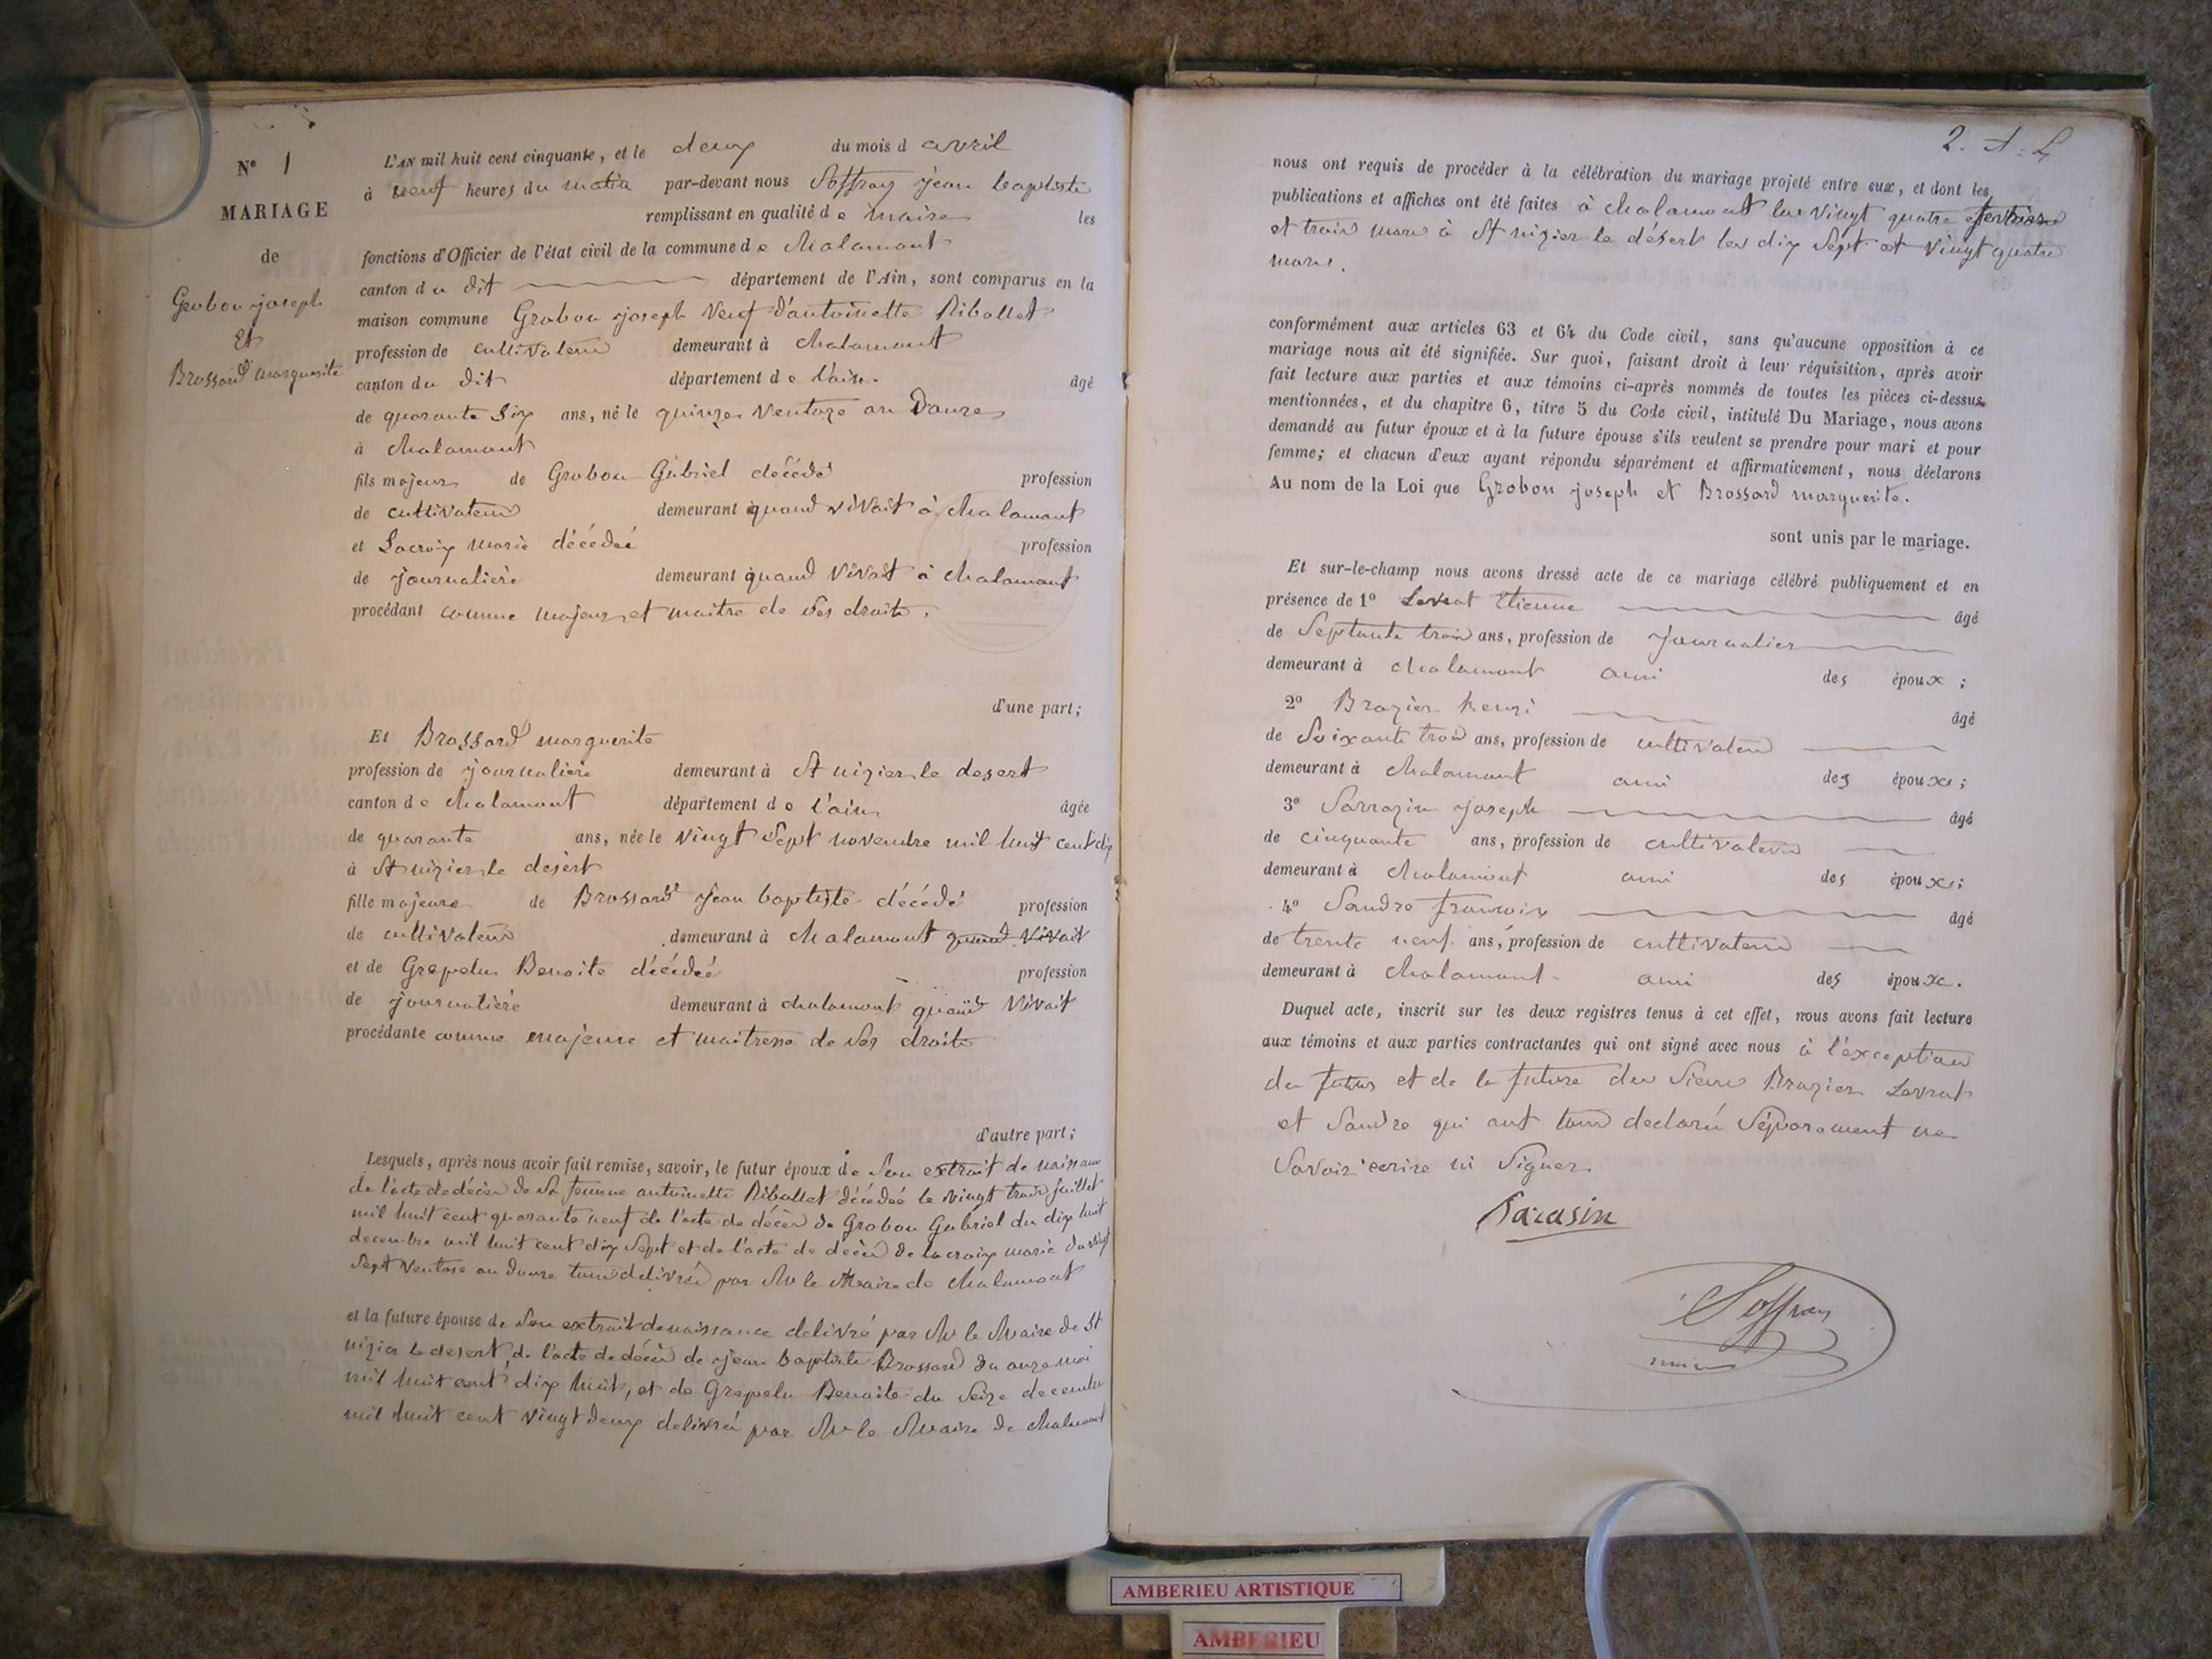 N° 1
MARIAGE
de
Grobon joseph
Et
Brossard marguerite
L'AN mil huit cent cinquante, et le deux du mois d avril
à neuf heures du matin par-devant nous Soffray jean baptiste
remplissant en qualité de maire les
fonctions d'Officier de l'état civil de la commune de chalamont
canton du dit département de l'Ain, sont comparus en la
maison commune Grobon joseph veuf d'antoinette Ribollet
profession de cultivateur demeurant à chalamont
canton du dit département de l'ain. âgé
de quarante six ans, né le quinze ventoze an Douze
à chalamont
fils majeur de Grobon Gabriel décédé profession
de cultivateur demeurant quand vivait à chalamont
et Lacroix marie décédeé profession
de journalière demeurant quand vivait à chalamont
procédant comme majeur et maitre de ses droits.
d'une part;
Et Brossard marguerite
profession de journaliere demeurant à St nizier le desert
canton de chalamont département de l'ain âgée
de quarante ans, née le vingt sept novembre mil huit cent dix
à St nizier le desert
fille majeure de Brossard jean baptiste décédé profession
de cultivateur demeurant à chalamont quand vivait
et de Grepelu Benoite décédeé profession
de journaliere demeurant à chalamont quand vivait
procédante comme majeure et maitresse de ses droits
d'autre part;
Lesquels, après nous avoir fait remise, savoir, le futur époux de son extrait de naissance
de l'acte de décès de sa femme antoinette Ribollet décédeé le vingt trois juillet
mil huit cent quarante neuf de l'acte de décès de Grobon Gabriel du dix huit
decembre mil huit cent dix sept et de l'acte de décès de lacroix marie du vingt
sept ventose an douze tous delivrés par Mr le Maire de chalamont
et la future épouse de son extrait de naissance delivré par Mr le Maire de St
nizier le desert, de l'acte de décès de jean baptiste Brossard du onze mai
mil huit cent dix huit, et de Grepelu Benoite du seize decembre
mil huit cent vingt deux delivrés par Mr le Maire de chalamont
2.
nous ont requis de procéder à la célébration du mariage projeté entre eux, et dont les
publications et affiches ont été faites à chalamont les vingt quatre fevrier
et trois mars à St nizier le désert les dix sept et vingt quatre
mars.
conformément aux articles 63 et 64 du Code civil, sans qu'aucune opposition à ce
mariage nous ait été signifiée. Sur quoi, faisant droit à leur réquisition, après avoir
fait lecture aux parties et aux témoins ci-après nommés de toutes les pièces ci-dessus
mentionnées, et du chapitre 6, titre 5 du Code civil, intitulé Du Mariage, nous avons
demandé au futur époux et à la future épouse s'ils veulent se prendre pour mari et pour
femme; et chacun d'eux ayant répondu séparément et affirmativement, nous déclarons
Au nom de la Loi que Grobon joseph et Brossard marguerite.
sont unis par le mariage.
Et sur-le-champ nous avons dressé acte de ce mariage célébré publiquement et en
présence de 1° Levrat Etienne âgé
de Septante trois ans, profession de journalier
demeurant à chalamont ami des époux;
2° Brazier henri âgé
de Soixante trois ans, profession de cultivateur
demeurant à chalamont ami des époux;
3° Sarrazin joseph âgé
de cinquante ans, profession de cultivateur
demeurant à chalamont ami des époux;
4° Sandre francois âgé
de trente neuf ans, profession de cultivateur
demeurant à chalamont ami des époux.
Duquel acte, inscrit sur les deux registres tenus à cet effet, nous avons fait lecture
aux témoins et aux parties contractantes qui ont signé avec nous à l'exception
du futur et de la future des sieurs Brazier Levrat
et Sandre qui ont tous declaré séparement ne
savoir ecrire ni signer.
Sarasin
Soffray
maire
AMBERIEU ARTISTIQUE
AMBERIEU